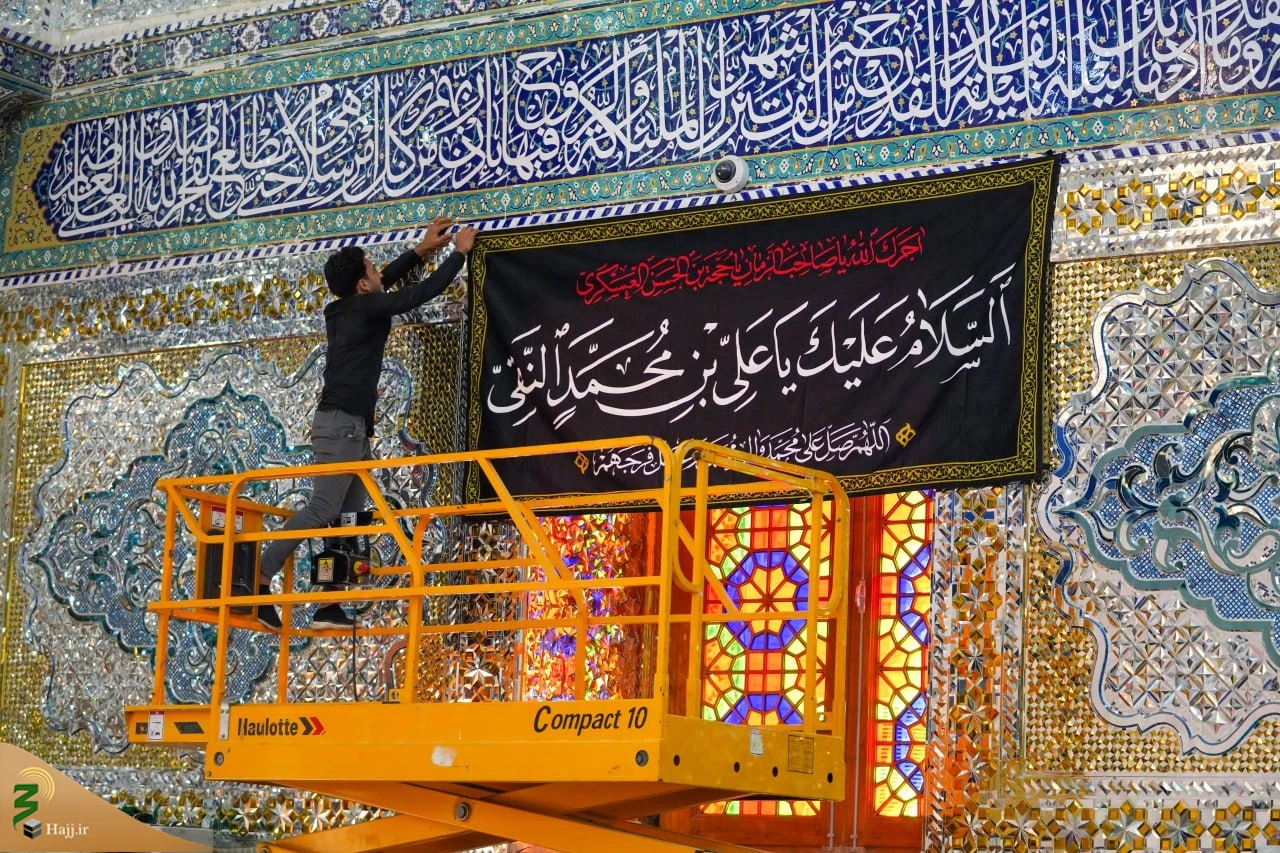 وما ادريك ما ليلة القدر ليلة القدر خير من الف شهر تنزل الملئكة والروح فيها باذن ربهم من كل امر سلام هي حتى مطلع الفجر صدق الله العلي العظيم
اجرك الله يا صاحب الزمان يا حجة بن الحسن العسكري
اَلسَّلامُ عَلَيْكَ يا عَلِيَّ بْنَ مُحَمَّدٍ ٱلنَّقِيّ
اللهم صل على محمد وال فرجهم
Haulotte
Compact 10
Hajj.ir